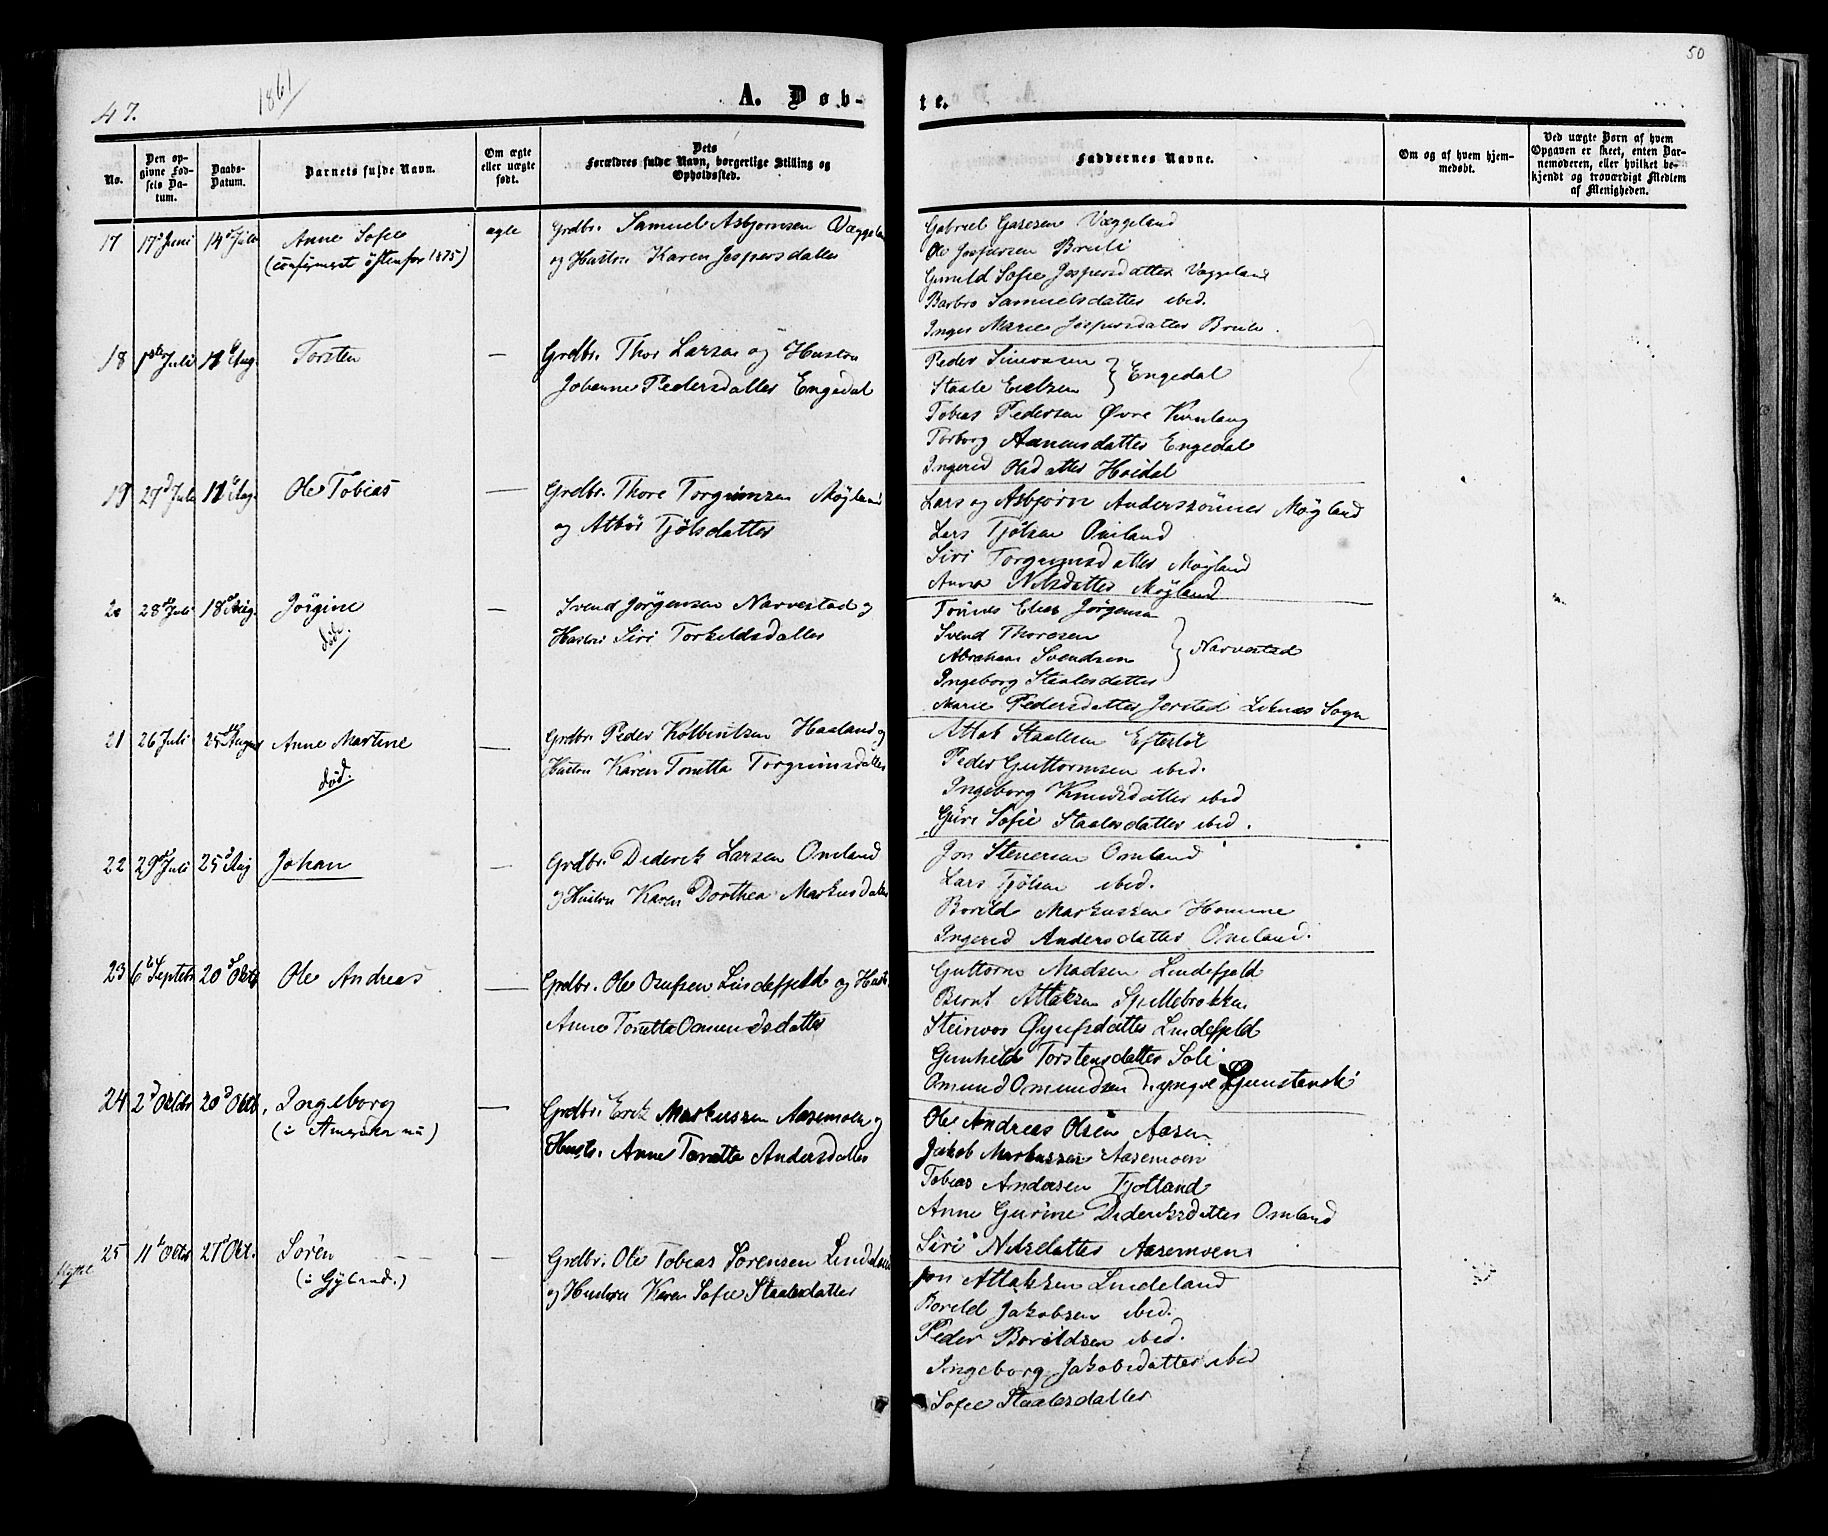 47.
1861
A. Døb-
te.
50
No.
Den opgivne Fødsels Datum.
Daabs-Datum.
Barnets fulde Navn.
Om ægte eller uægte født.
Dets Forældres fulde Navn, borgerlige Stilling og Opholdssted.
Faddernes Navne.
Om og af hvem hjemmedøbt.
Ved uægte Børn af hvem Opgaven er skeet, enten Barnemoderen, eller hvilket bekjendt og troværdigt Medlem af Menigheden.
17 17de Juni 14de Juli Anne Sofie ægte Grdbr. Samuel Asbjørnsen Væggeland
(confirmeret østenfor 1875) og Hustru Karen Jespersdatter
Gabriel Væggeland
Ole Jespersen Bruli
Gunild Sofie Jespersdatter Væggeland
Barbro Samuelsdatter ibid.
Inger Marie Jespersdatter Bruli.
18 1ste Juli 11te Aug. Torsten — Grdbr. Thor Larsen og Hustru
Johanne Pedersdatter Engedal
Peder Simonsen
Staale Eielsen } Engedal
Tobias Pedersen Øvre Kvinlaug
Torborg Aanensdatter Engedal
Ingerid Olsdatter Hoidal
19 27de Juli 11te Aug. Ole Tobias — Grdbr. Thore Torgrimsen Møgland
og Albør Tjølsdatter
Lars og Asbjørn Anderssønner Møgland
Lars Tjølsen Omland
Siri Torgrimsdatter Møgland
Anna Nilsdatter Møgland
20 28de Juli 18de Aug. Jørgine — Svend Jørgensen Narvestad og
død. Hustru Siri Torkildsdatter
Tønnes Elias Jørgensen
Svend Thoresen
Abraham Svendsen } Narvestad
Ingeborg Staalesdatter
Marie Pedersdatter Jerstad Liknes Sogn
21 26 Juli 25de August Anne Martine — Grdbr. Peder Kolbentsen Haaland og
død. Hustru Karen Tonetta Torgrimsdatter
Attak Staalesen Eftestøl
Peder Guttormsen ibid.
Ingeborg Knudsdatter ibid
Guri Sofie Staalesdatter ibid.
22 29de Juli 25de Aug Johan — Grdbr. Diderik Larsen Omland
og Hustru Karen Dorthea Markusdatter
Jon Stenersen Omland
Lars Tjølsen ibid.
Borild Markussen Homme
Ingerid Andersdatter Omland.
23 6te Septebr 20de Oktb Ole Andreas — Grdbr. Ole Osufsen Lindefjeld og Hustr.
Anne Tonetta Omundsdatter
Guttorm Madsen Lindefjeld
Bernt Attaksen Spillebrokken
Steinvor Øyufsdatter Lindefjeld
Gunhild Torstensdatter Soli
Omund Omundsen d. yngre
24 2de Oktbr 20de Oktb. Ingeborg — Grdbr. Erik Markussen Aasemoen og
(i Amerika nu) Hustr. Anne Tonetta Andersdatter
Ole Andreas Olsen Aasen
Jakob Markussen Aasemoen
Tobias Andersen Tjotland
Anne Gurine Dideriksdatter Omland
Siri Nilsdatter Aasemoen
flyttet 25 11te Oktb 27de Okt. Søren — Grdbr. Ole Tobias Sørensen Lindeland
(i Gyland.) og Hustru Karen Sofie Staalesdatter
Jon Attaksen Lindeland
Borild Jakobsen ibid.
Peder Borildsen ibid.
Ingeborg Jakobsdatter ibid
Sofie Staalesdatter